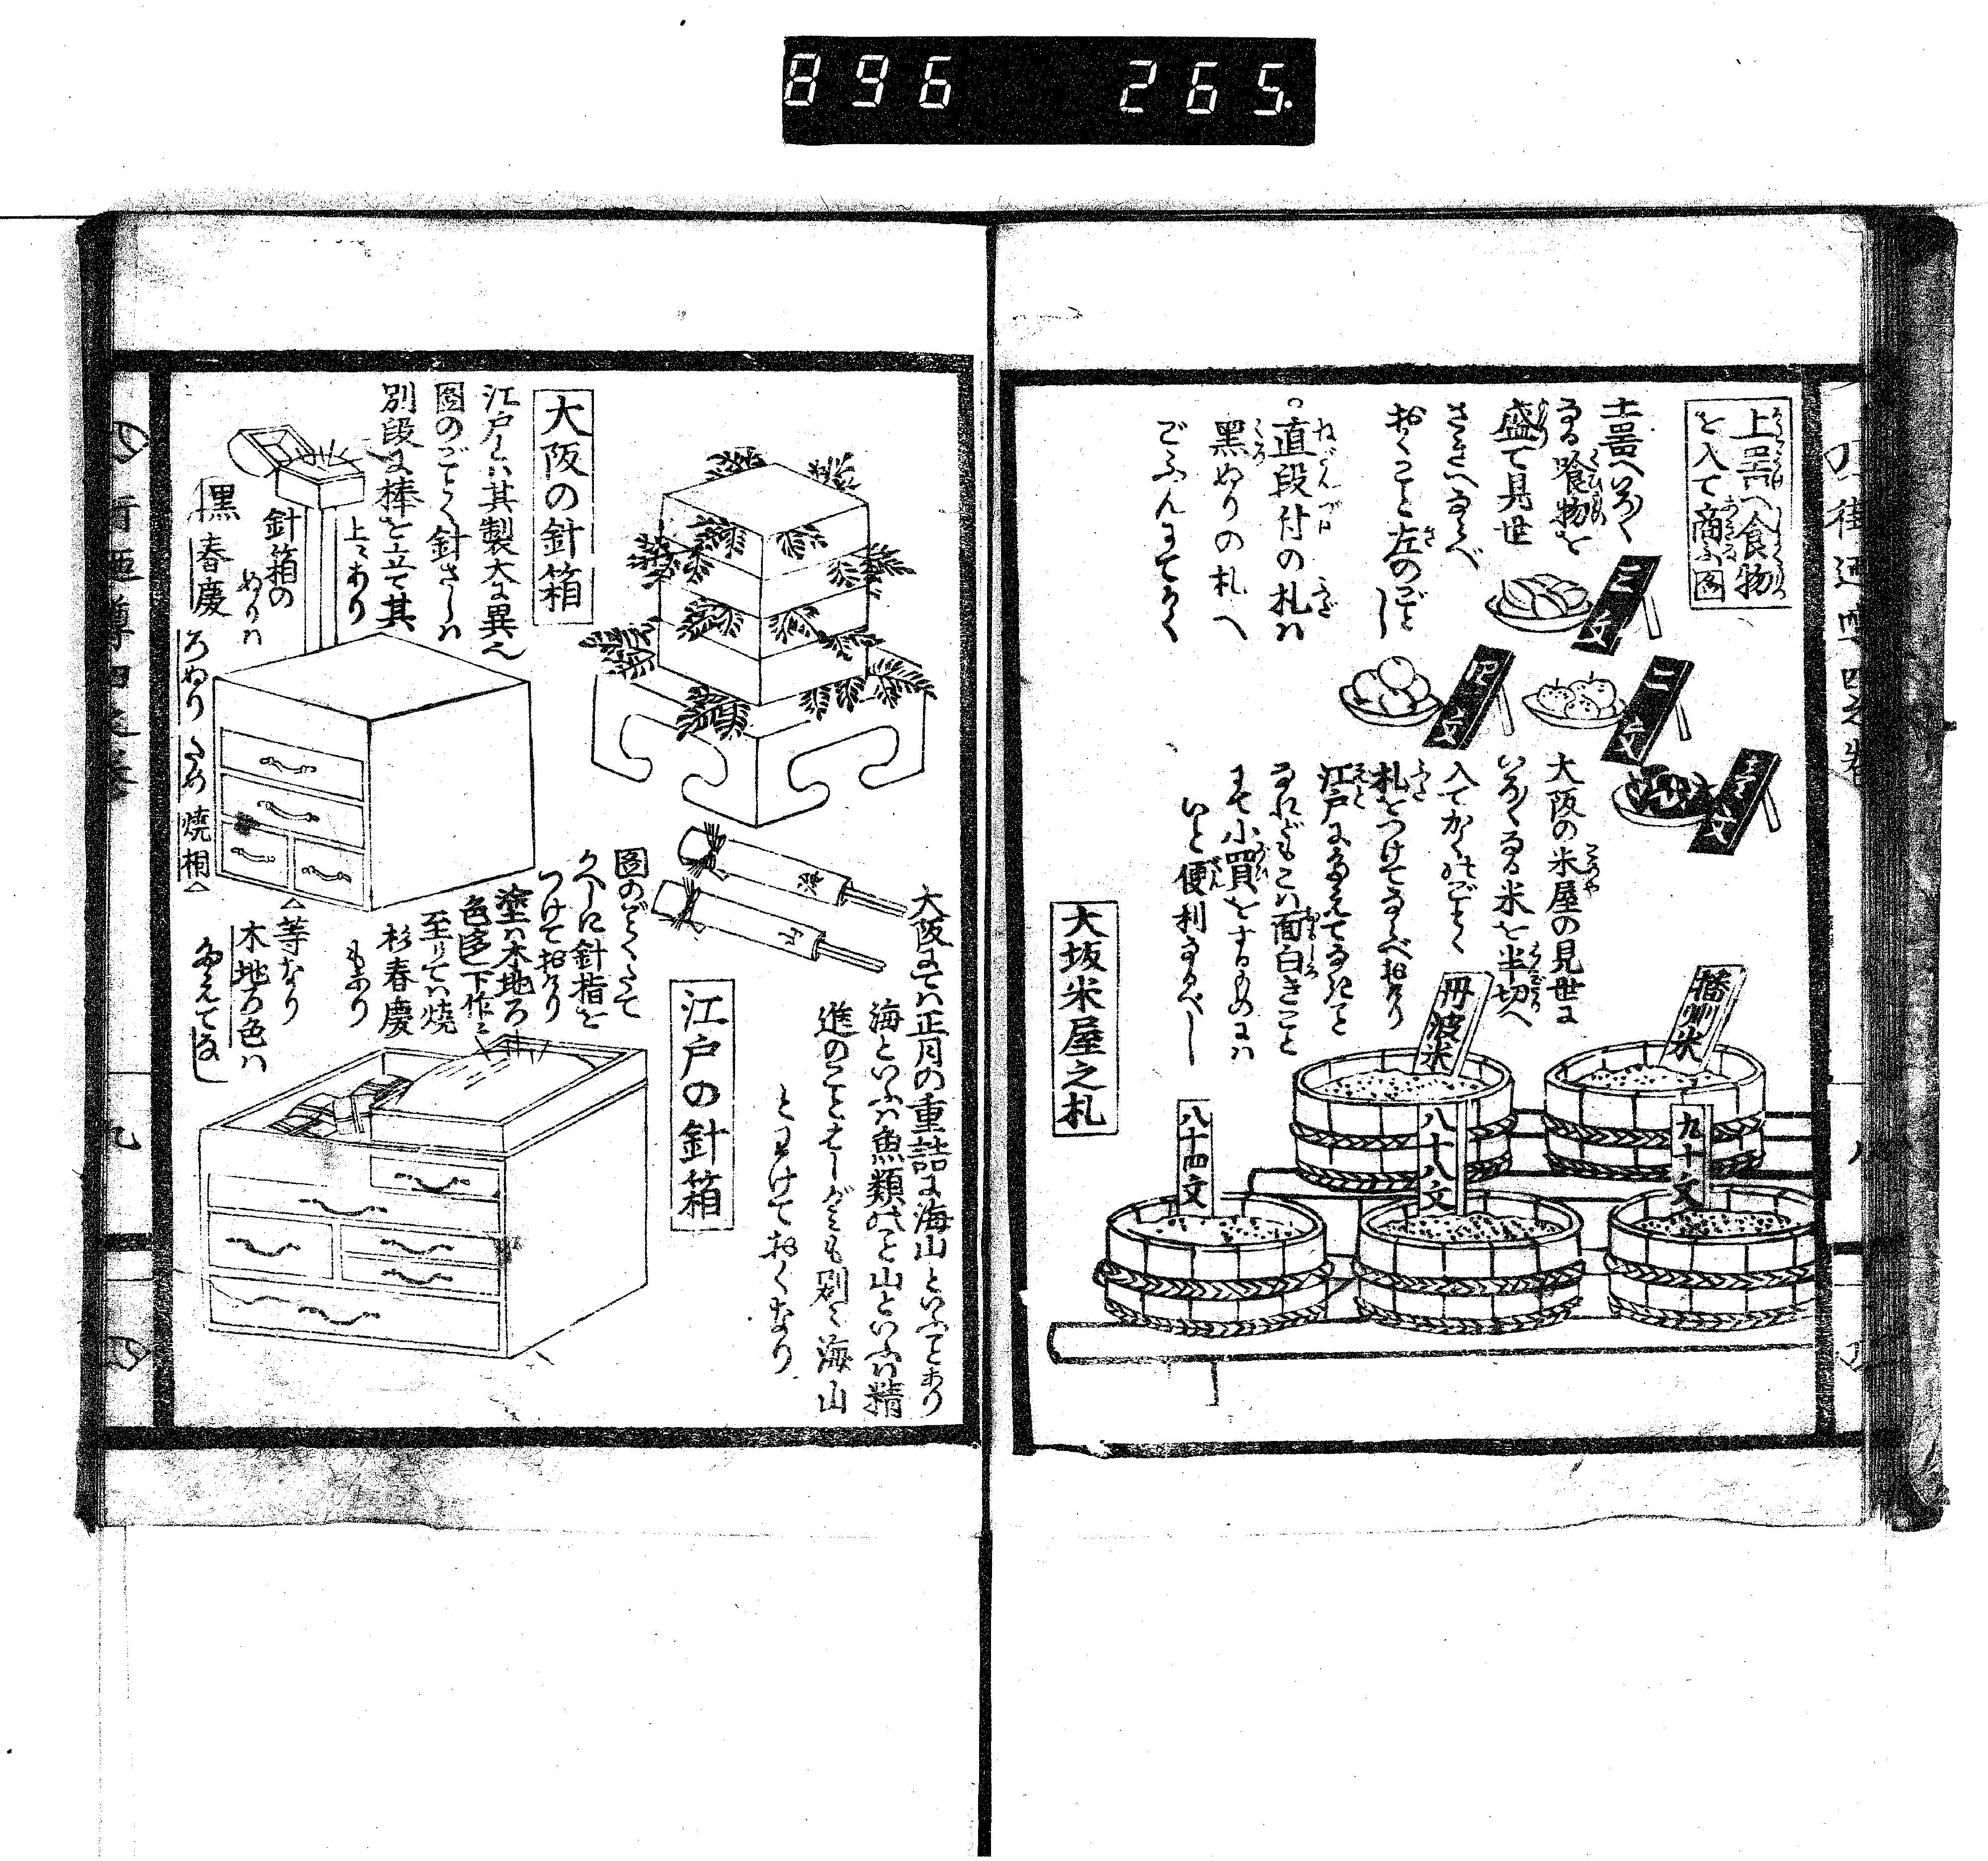 896 265.
土器へ食物
を入て商ふ図
土器へいろ〱
なる喰物を
盛て見世
さきへならべ
おくこと左のごとし
三文
二文
四文
三文
○直段付の札ハ
黒ぬりの札へ
ごふんにてかく
大阪の米屋の見世に
いろ〱なる米を半切へ
入てかくのごとく
札をつけてならべおけり
江戸にたえてなきこと
なれどもこハ面白きこと
にて小買をするものにハ
いと便利なるべし
大坂米屋之札
播州米
丹波米
九十文
八十八文
八十四文
八
大阪にてハ正月の重詰に海山といふことあり
海といふハ魚類のこと山といふハ精
進のことなりしかも別〻海山
とわけておくなり
大阪の針箱
江戸とハ其製大に異へり
図のごとく針さしハ
別段に棒を立て其
上ニあり
針箱の
ぬりハ
黒
春慶
ろぬり
ため
焼桐
等なり
木地ろ色ハ
たえてなし
江戸の針箱
図のごとくたて
かへしに針指を
つけておけり
塗ハ木地ろ
色多し下作ニ
至りてハ焼
杉春慶
もあり
九